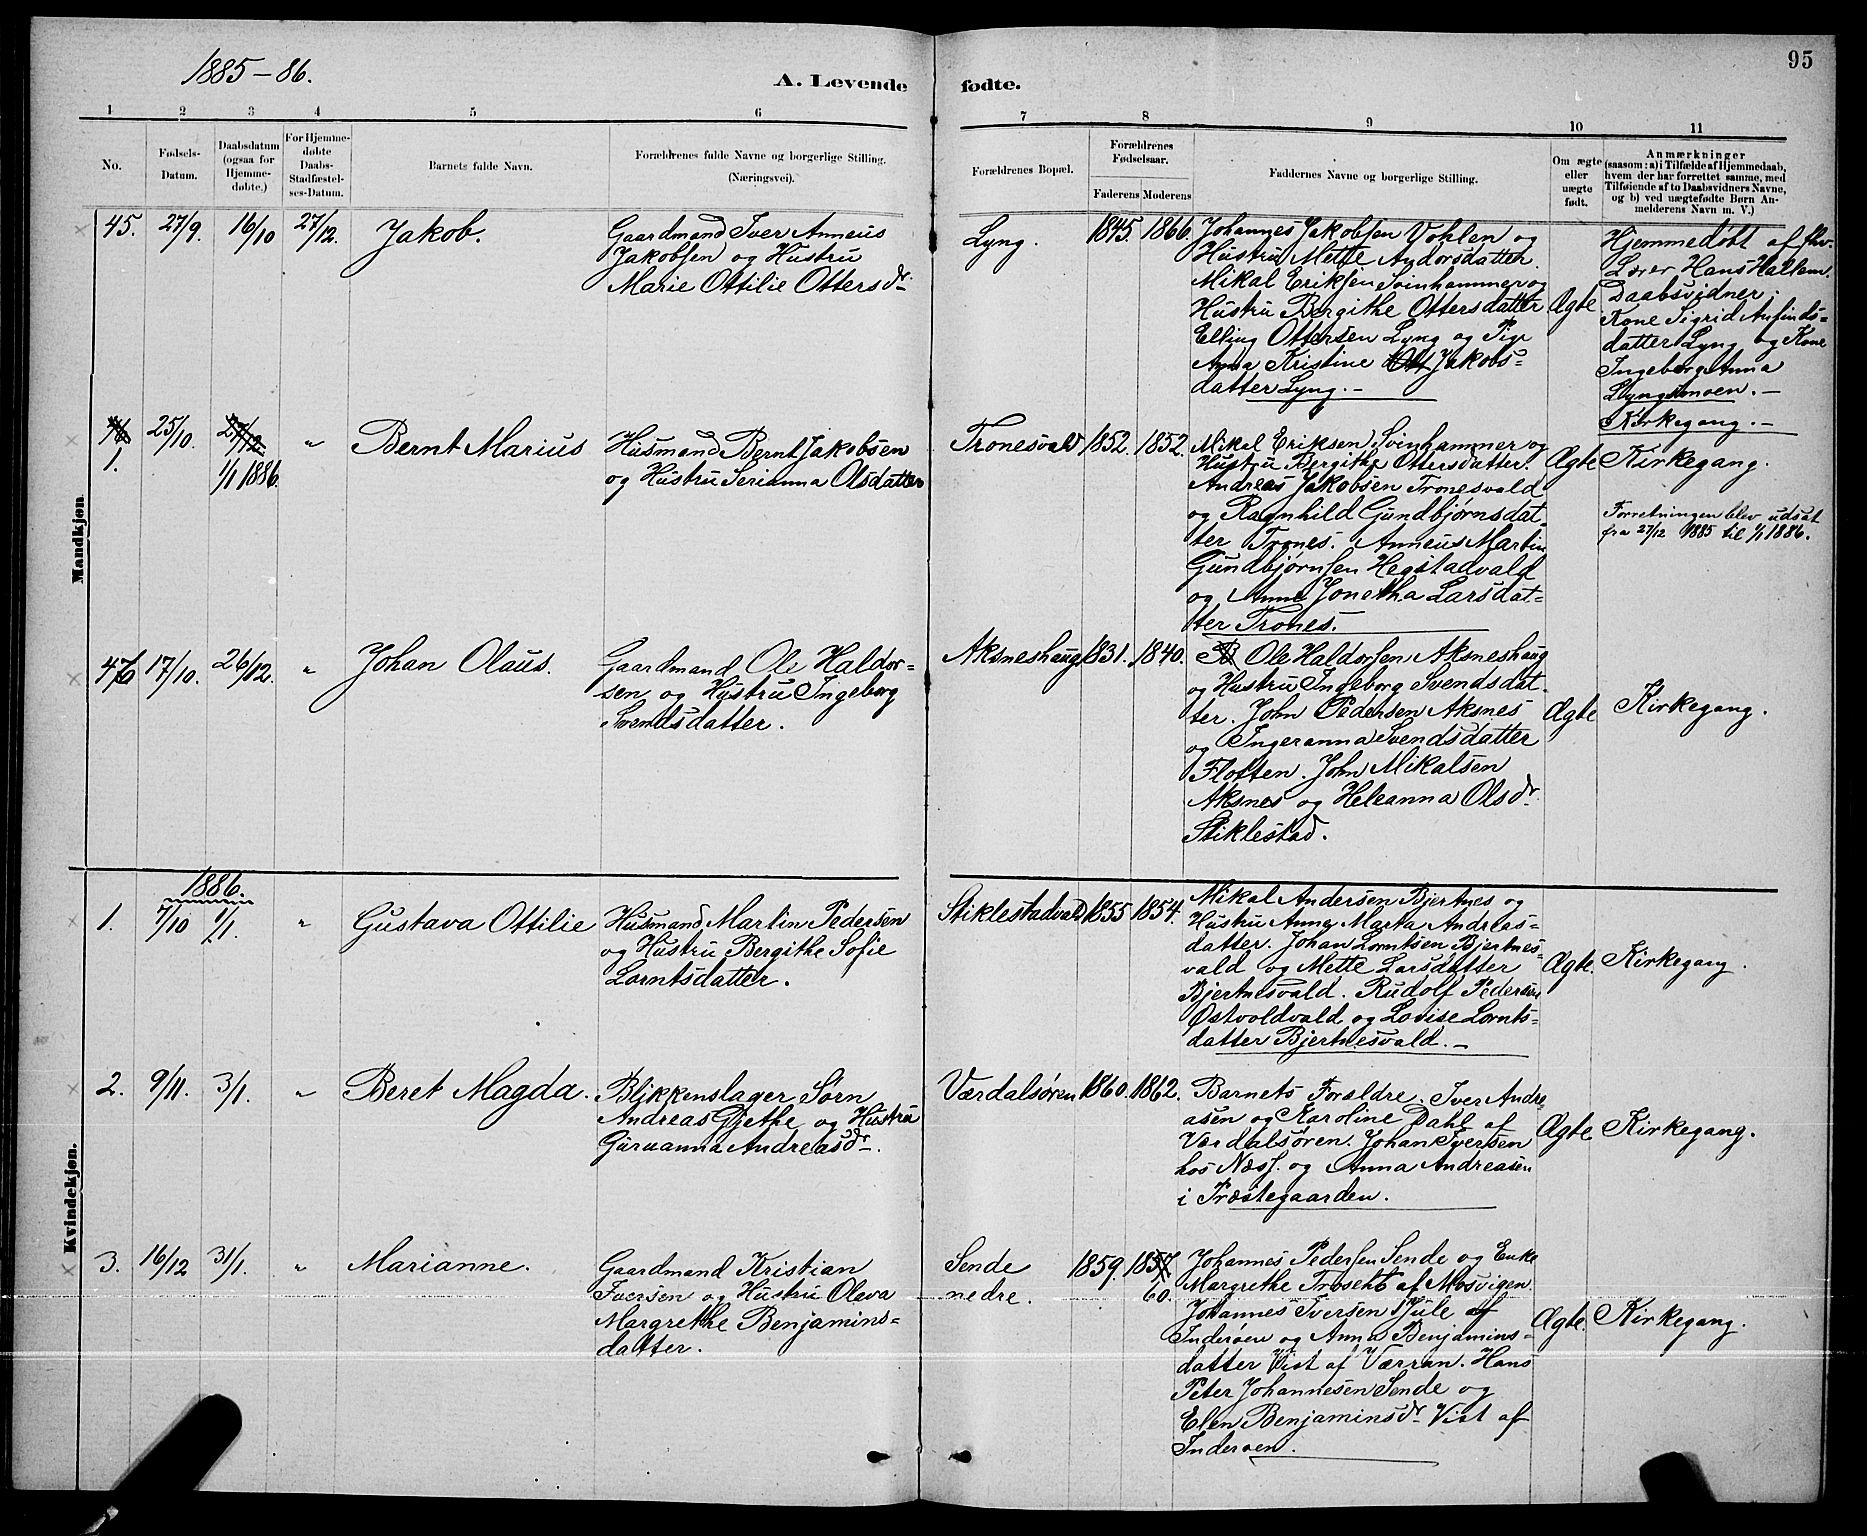 95
1885–86.
A. Levende fødte.
1 2 3 4 5 6 7 8 9 10 11
No.
Fødsels-
Datum.
Daabsdatum
(ogsaa for
Hjemme-
døbte.)
For Hjemme-
døbte
Daabs-
Stadfæstel-
ses-Datum.
Barnets fulde Navn.
Forældrenes fulde Navne og borgerlige Stilling.
(Næringsvei).
Forældrenes Bopæl.
Forældrenes
Fødselsaar.
Faderens Moderens
Faddernes Navne og borgerlige Stilling.
Om ægte
eller
uægte
født.
Anmærkninger
(saasom: a) i Tilfælde af Hjemmedaab,
hvem der har forrettet samme, med
Tilføiende af to Daabsvidners Navne,
og b) ved uægtefødte Børn An-
melderens Navn m. V.)
Mandkjøn.
45. 27/9. 16/10 27/12. Jakob.
Gaardmand Iver Anneus
Jakobsen og Hustru
Marie Ottilie Ottersdr.
Lyng. 1845. 1866.
Johannes Jakobsen Vohlen og
Hustru Mette Andorsdatter.
Mikal Eriksen Svinhammer og
Hustru Bergithe Ottersdatter
Elling Ottersen Lyng og Pige
Anna Kristine Ott Jakobs-
datter Lyng. –
Ægte
Hjemmedøbt af fhv.
Lærer Hans Hallem.
Daabsvidner:
Kone Sigrid Anfinds-
datter Lyng og Kone
Ingeborg Anna
Lyngsmoen. –
Kirkegang. –
46
1. 25/10. 27/12
1/1 1886. " Bernt Marius
Husmand Bernt Jakobsen
og Hustru Serianna Olsdatter
Tronesvald 1852. 1852.
Mikal Eriksen Svinhammer og
Hustru Bergithe Ottersdatter.
Andreas Jakobsen Tronesvald
og Ragnhild Gundbjørnsdat-
ter Trones. Anneus Martin
Gundbjørnsen Hegstadvald
og Anne Jonetha Larsdat-
ter Trones.
Ægte Kirkegang.
Forretningen blev udsat
fra 27/12 1885 til 1/1 1886.
46 17/10. 26/12. " Johan Olaus.
Gaardmand Ole Haldor-
sen og Hustru Ingeborg
Svendsdatter.
Aksneshaug 1831. 1840.
Ole Haldorsen Aksneshaug
og Hustru Ingeborg Svendsdat-
ter. John Pedersen Aksnes
og Ingeranna Svendsdatter
Flotten. John Mikalsen
Aksnes og Heleanna Olsdr.
Stiklestad.
Ægte Kirkegang.
Kvindekjøn.
1886.
1. 7/10 1/1. " Gustava Ottilie
Husmand Martin Pedersen
og Hustru Bergithe Sofie
Lorntsdatter.
Stiklestadvald 1855 1854.
Mikal Andersen Bjertnes og
Hustru Anna Marta Andreas-
datter. Johan Lorntsen Bjertnes-
vald og Mette Larsdatter
Bjertnesvald. Rudolf Pedersen
Østvoldvald og Lovise Lornts-
datter Bjertnesvald. –
Ægte. Kirkegang.
2. 9/11. 3/1. " Beret Magda.
Blikkenslager Sørn
Andreas Gjethe og Hustru
Guruanna Andreasdr.
Værdalsøren 1860. 1862.
Barnets Forældre. Iver Andre-
asen og Karoline Dahl af
Værdalsøren. Johan Iversen
hos Næss. og Anna Andreasen
i Præstegaarden.
Ægte Kirkegang.
3. 16/12 31/1. " Marianne.
Gaardmand Kristian
Iversen og Hustru Olava
Margrethe Benjamins-
datter.
Sende
nedre. 1859. 1857
60.
Johannes Pedersen Sende og Enke
Margrethe Troseth af Mosvigen.
Johannes Iversen Hjule af
Inderøen og Anna Benjamins-
datter Vist af Værran. Hans
Peter Johannesen Sende og
Elen Benjaminsdr. Vist af
Inderøen.
Ægte. Kirkegang.